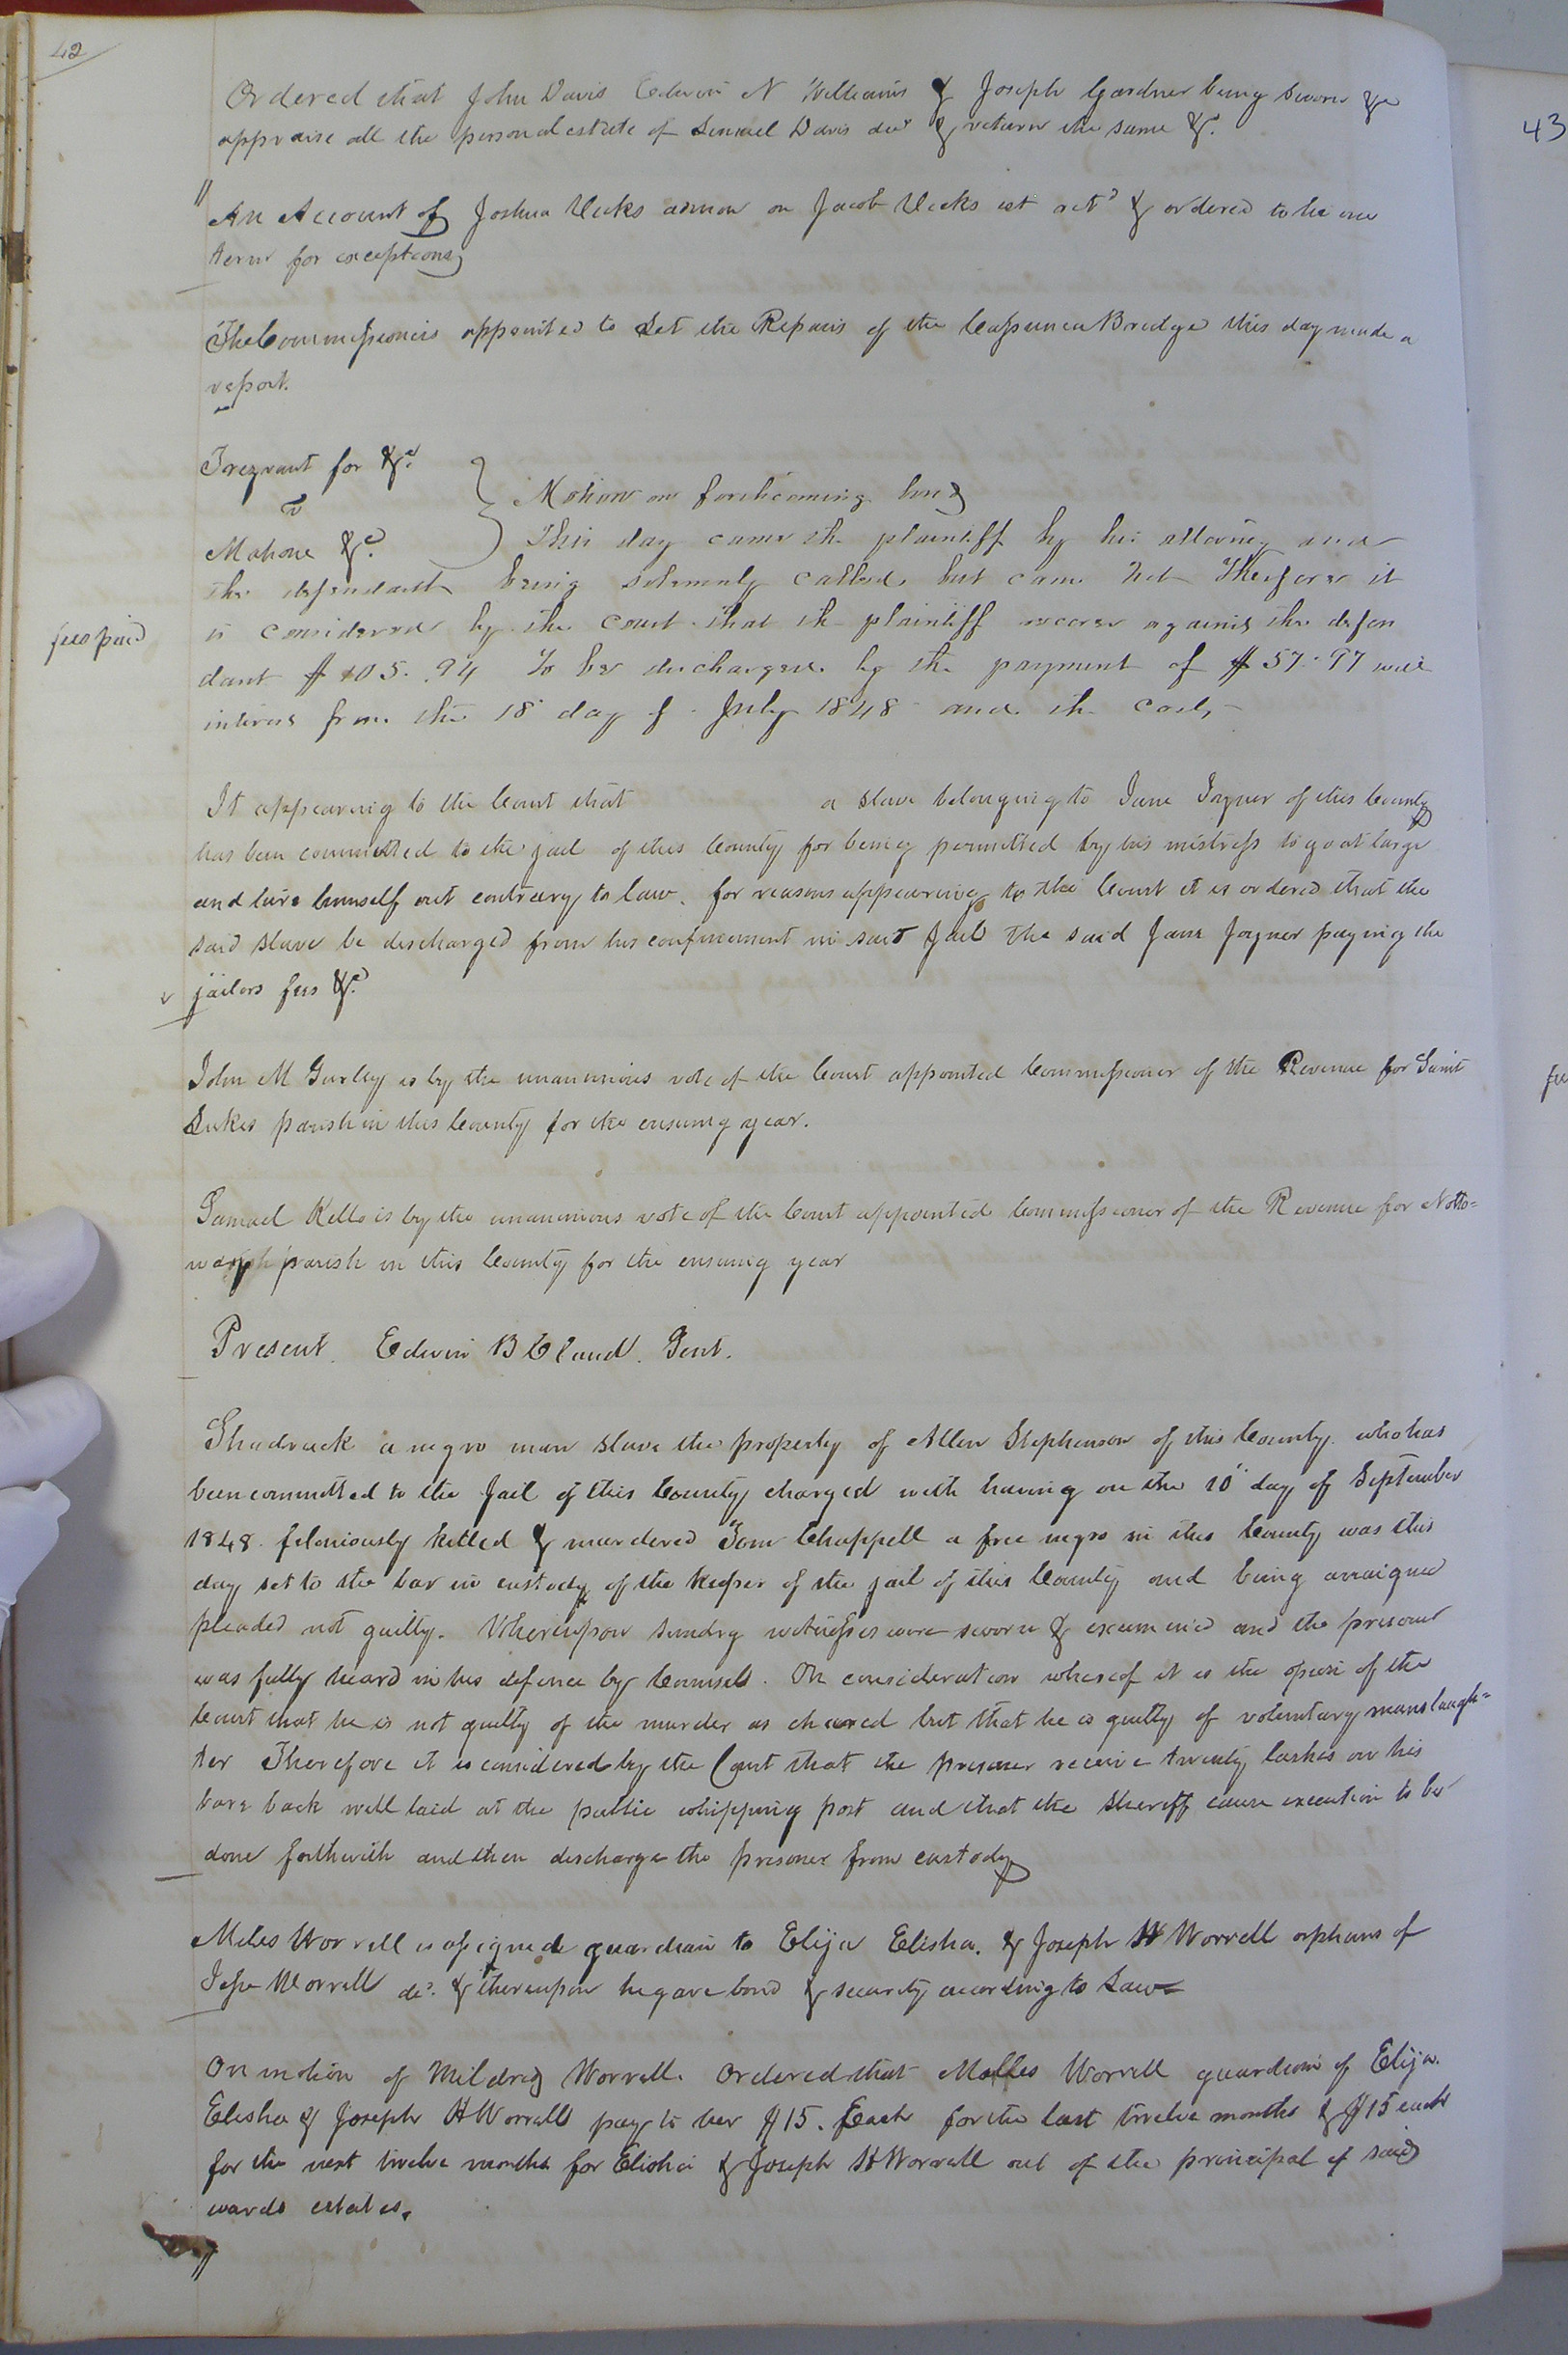 42
Ordered that John Davis Edwin N Williams & Joseph Gardner being sworn &c
appraise all the personal estate of Lemuel Davis decd & return the same &c.
An Account of Joshua Vicks admor on Jacob Vicks est retd & ordered to lie one
term for exceptions
The Commissioners appointed to Let the Repairs of the Bridge this day made a
report.
Trezvant for &c.
v
Mahone &c.
Motion on forthcoming bond
This day came the plaintiff by his attorney and
the defendant being solemnly called, but came not Therefore it
is considered by the court that the plaintiff recover against the defen
fees paid
dant $105.94 to be discharged by the payment of $57.97 with
interest from the 18 day of July 1848 and the costs
It appearing to the Court that a slave belonging to Jane Joyner of this County
has been committed to the jail of this County for being permitted by his mistress to go at large
and hire himself out contrary to law. for reasons appearing to the Court it is ordered that the
said slave be discharged from his confinement in said Jail the said Jane Joyner paying the
jailors fees &c.
John M Gurley is by the unanimous vote of the Court appointed Commissioner of the Revenue for Saint
Lukes parish in this County for the ensuing year.
Samuel Kello is by the unanimous vote of the Court appointed Commissioner of the Revenue for Notto=
way parish in this County for the ensuing year
Present. Edwin B Claud. Gent.
Shadrack a negro man slave the property of Allen Stephenson of this County. who has
been committed to the Jail of this County charged with having on the 10 day of September
1848. feloniously killed & murdered Tom Chappell a free negro in this County was this
day set to the bar in custody of the keeper of the jail of this County and being arraigned
pleaded not guilty. Whereupon sundry witnesses were sworn & examined and the prisoner
was fully heard in his defence by Counsel. On consideration whereof it is the opinion of the
Court that he is not guilty of the murder as charged but that he is guilty of voluntary manslaugh=
ter Therefore it is considered by the Court that the prisoner receive twenty lashes on his
bare back well laid at the public whipping post and that the Sheriff cause execution to be
done forthwith and then discharge the prisoner from custody
Miles Worrell is assigned guardian to Elija Elisha. & Joseph H Worrell orphans of
Jesse Worrell decd. & thereupon he gave bond & security according to Law
On motion of Mildred Worrell. Ordered that Miles Worrell guardian of Elija.
Elisha & Joseph H Worrell pay to her $15. Each for the last twelve months & $15 each
for the next twelve months for Elisha & Joseph H Worrell out of the principal of said
wards estates.
43